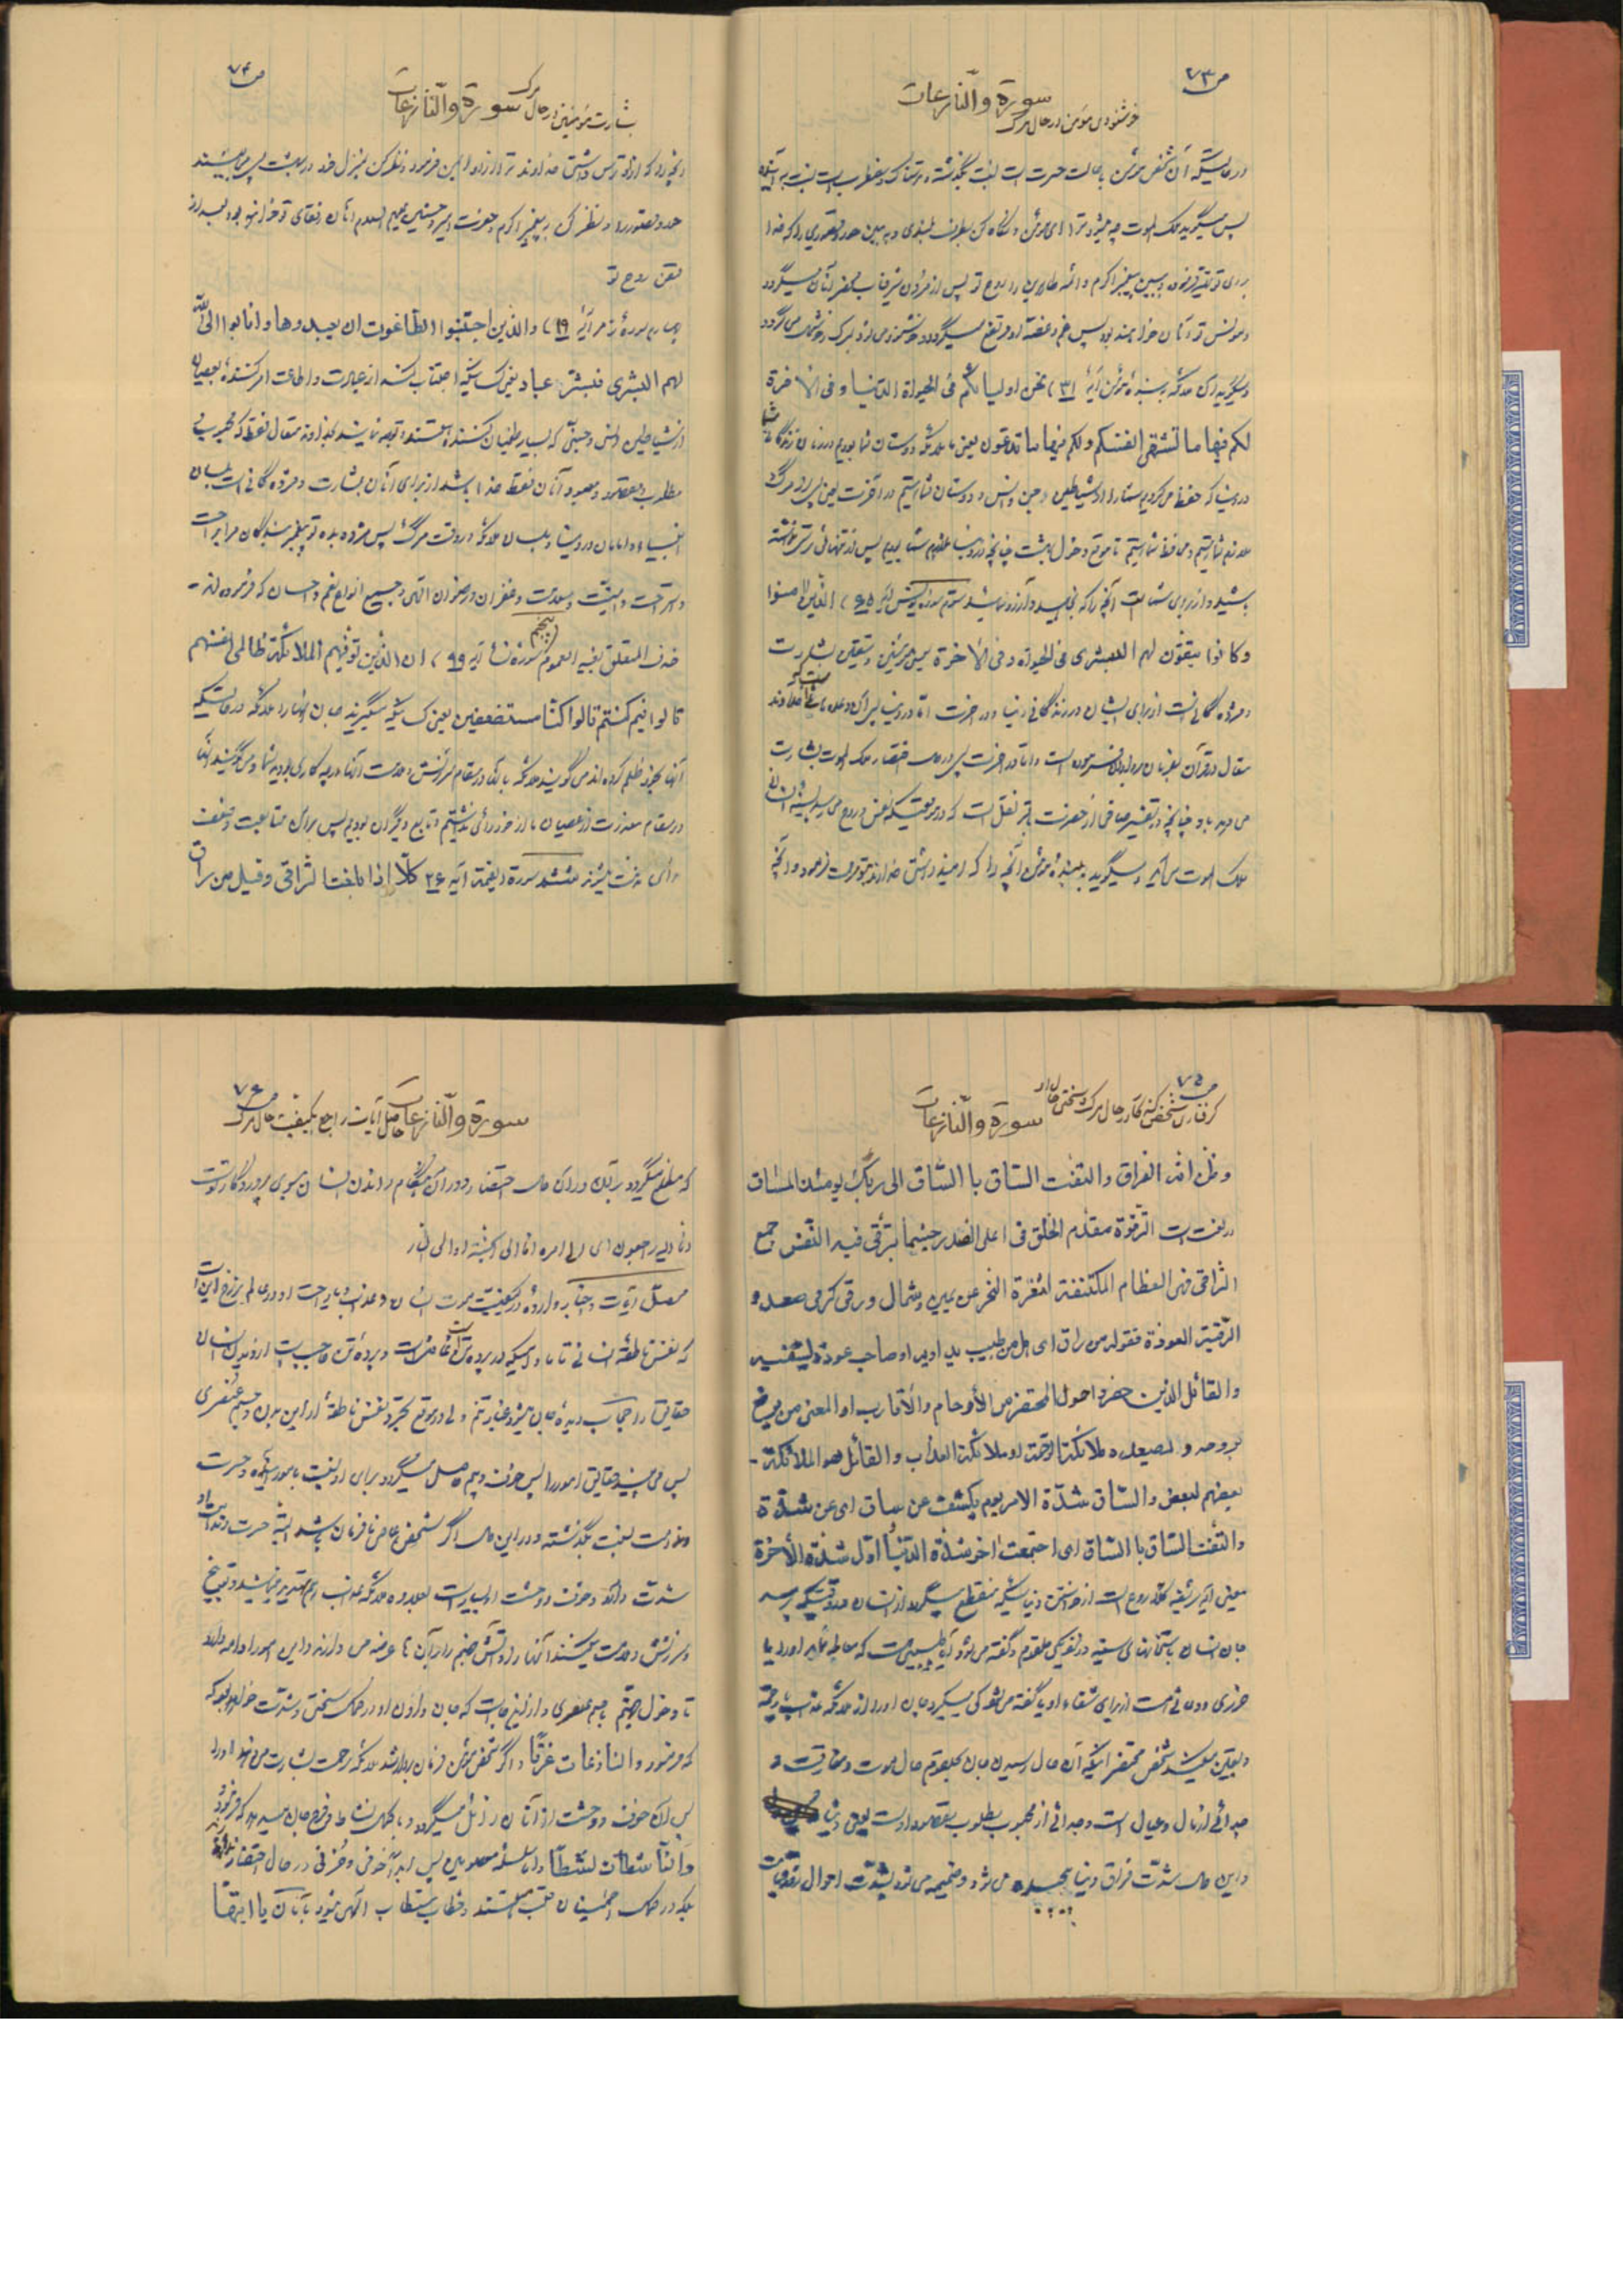 ص ۷۳
سورة والنازعات
خوشنودی مؤمن در حال مرگ
در حالتیکه آن شخص مؤمن با حالت حسرت است نسبت بگذشته و ترسناک و مضطرب است نسبت به آینده
پس میگوید ملک الموت چه میشود ترا ای مؤمن و نگاه کن بطرف بلندی و به بین حور و قصوری را که خدا
برای تو فرموده و ببین پیغمبر اکرم و ائمه را روح تو پس از مردن شرفیاب محضر آنان میگردد
و مونس تو آنان خواهند بود پس غم و غصه او مرتفع میگردد و خوشنود می شود بمرگ و خوشحال می گردد
و میگویند ملائکه به بنده مؤمن آیۀ ۳۱) نحن اولیائکم فی الحیواة الدنیا و فی الاخرة
لکم فیها ما تشتهی انفسکم ولکم فیها ما تدعون یعنی ما ملائکه دوستان شما بودیم در زمان زندگانی شما
در دنیا که حفظ می کردیم شما را از شیاطین جن و انس و دوستان شما هستیم در آخرت یعنی پس از مرگ
شما هستیم و محافظ شما هستیم تا موقع دخول بهشت چنانچه در دنیا ملازم شما بودیم پس از تنهائی نترسید
باشید و از برای شما است آنچه را که بخواهید و آرزو نمائید سوم سوره یونس آیۀ ۶۵) الذین امنوا
و کانوا یتقون لهم البشری فی الحیواة و فی الأخرة پس مؤمنین و متقین بشارت
و مژده گانی است از برای ایشان در زندگانی دنیا و در آخرت اما در دنیا پس آن وعده هائی است که خداوند
متعال در قرآن بفرمان برداران فرموده است و اما در آخرت پس در حال احتضار ملک الموت بشارت
می دهد باو چنانچه در تفسیر صافی از حضرت باقر نقل است که در موقعیکه نفس و روح می رسد بسینه انسانی
ملک الموت می آید و میگوید به بنده مؤمن آنچه را که امید داشتی خداوند بتو مرحمت فرمود و آنچه
ص ۷۴
بشارت مؤمنین در حال مرگ سورة والنازعات
آنچه را که از او ترس داشتی خداوند ترا از او ایمن فرمود و نظر کن بمنزل خود در بهشت پس می بیند
حور و قصور را و نظر کن به پیغمبر اکرم و حضرت امیر و حسنین علیهم السلام آنان رفقای تو خواهند بود بعد از
قبض روح تو
چهارم سورۀ زمر آیۀ ۱۹) والذین اجتنبوا الطاغوت ان یعبدوها وانابوا الی الله
لهم البشری فبشر عباد یعنی کسانیکه اجتناب کنند از عبادت و اطاعت امر کننده بعصیان
از شیاطین انسی و جنی که بسیار طغیان کننده هستند و توجه نمایند بخداوند متعال فقط که محبوب
مطلوب و مقصود و معبود آنان فقط خدا باشد از برای آنان بشارت و مژده گانی است بلسان
انبیاء و امامان در دنیا و بلسان ملائکه در وقت مرگ پس مژده بده تو ای پیغمبر بندگان مرا براحت
و استراحت و امنیت و سعادت و غفران و رضوان الهی و جمیع انواع نعم و احسان که فرموده اند -
حذف المتعلق یفید العموم پنجم سوره نساء آیۀ ۹۹) ان الذین توفیهم الملائکة ظالمی انفسهم
قالوا فیم کنتم قالوا کنا مستضعفین یعنی کسانیکه میگیرند جان آنها را ملائکه در حالتیکه
آنها بخود ظلم کرده اند می گویند ملائکه بآنان در مقام سرزنش و ملامت آنها در چه کاری بودید شما و می گویند آنها
در مقام معذرت از عصیان ما از خود رائی نداشتیم و تابع دیگران بودیم پس برای متابعت و ضعف
رأی ششم سورة القیمة آیۀ ۲۶ کلا اذا بلغت التراقی و قیل من راق
ص ۷۵
گرفتاری شخص گنه کار در حال مرگ و سختی حال او
سورة والنازعات
و ظن انه الفراق والتفت الساق بالساق الی ربک یومئذ المساق
در لغت است الترقوة مقدم الحلق فی اعلی الصدر حیثما یترقی فیه النفس جمع
التراقی فهی العظام المکتنفة لثغرة النحر عن یمین و شمال و رقی کرمی صعد و
الرقیة العوذة فقوله من راق ای هل من طبیب یداویه او صاحب عوذة لیشفیه
والقائل الذین حضروا حول المحتضر من الأرحام والأقارب او المعنی من یعرج
بروحه و یصعده ملائکة الرحمة او ملائکة العذاب والقائل هو الملائکة -
بعضهم لبعض والساق شدة الامر یوم یکشف عن ساق ای عن شدة
والتفت الساق بالساق ای اجتمعت اخر شدة الدنیا اول شدة الأخرة
معنی آیه شریفه کلا ردع است از خواستن دنیا میگردد از انسان در وقتیکه برسد
جان انسان باستخوانهای سینه در نزدیکی حلقوم و گفته می شود آیا طبیبی هست که معالجه نماید او را یا
حرزی و دعائی هست از برای شفاء او یا گفته می شود کی میگیرد جان او را از ملائکه عذاب یا رحمة
و یقین میکند شخص محتضر اینکه آن حال رسیدن جان بحلقوم حال موت و مفارقت و
جدائی از مال و عیال است و جدائی از محبوب و مطلوب و مقصود اوست یعنی دنیا
و این حال شدت فراق دنیا می شود و ضمیمه می شود بشدت احوال
ص ۷۶
سورة والنازعات حاصل آیات راجع بکیفیت حال مرگ
که مطلع میگردد بر آن در آن حال احتضار و در آن هنگام راندن انسان بسوی پروردگار توست
و انا الیه راجعون ای الی امره اما الی الجنة او الی النار
محصل آیات و اخبار وارده در کیفیت موت انسان و عذاب یا راحت او در عالم برزخ این است
که نفس ناطقه انسانی تا مادامیکه در پرده تن است و پرده تن حاجب است از دیدن انسان
حقایق را حجاب دیده جان میشود غبار تنم ولی در موقع تجرد نفس ناطقه از این بدن و جسم عنصری
پس می بیند حقایق امور را پس خوف و بیم حاصل میگردد برای او نسبت بامور آینده و حسرت
و ندامت نسبت بگذشته و در این حال اگر شخص عاصی نافرمان باشد البته حسرت و ندامت او
شدت دارد و خوف و وحشت او بسیار است بعلاوه ملائکه عذاب او هم تهدید مینمایند و توبیخ
و سرزنش و ملامت میکنند آنها او را و آتش جهنم را بر آن ها عرضه می دارند و این امور ادامه دارد
تا دخول جهنم با جسم عنصری و از اینجا است که جان دادن او در کمال سختی و شدت خواهد بود که
که فرمود والنازعات غرقا و اگر شخص مؤمن و فرمان بردار باشد ملائکه رحمت بشارت می دهند او را
پس آن خوف و وحشت از آنان زائل میگردد و با کمال نشاط و فرح جان میدهد که فرمود
والناشطات نشطا و اما سلسله معصومین پس ابدا خوفی و حزنی در حال احتضار ندارند
بلکه در کمال اطمینان قلب هستند و خطاب مستطاب الهی میشود بآنان یا ایتها